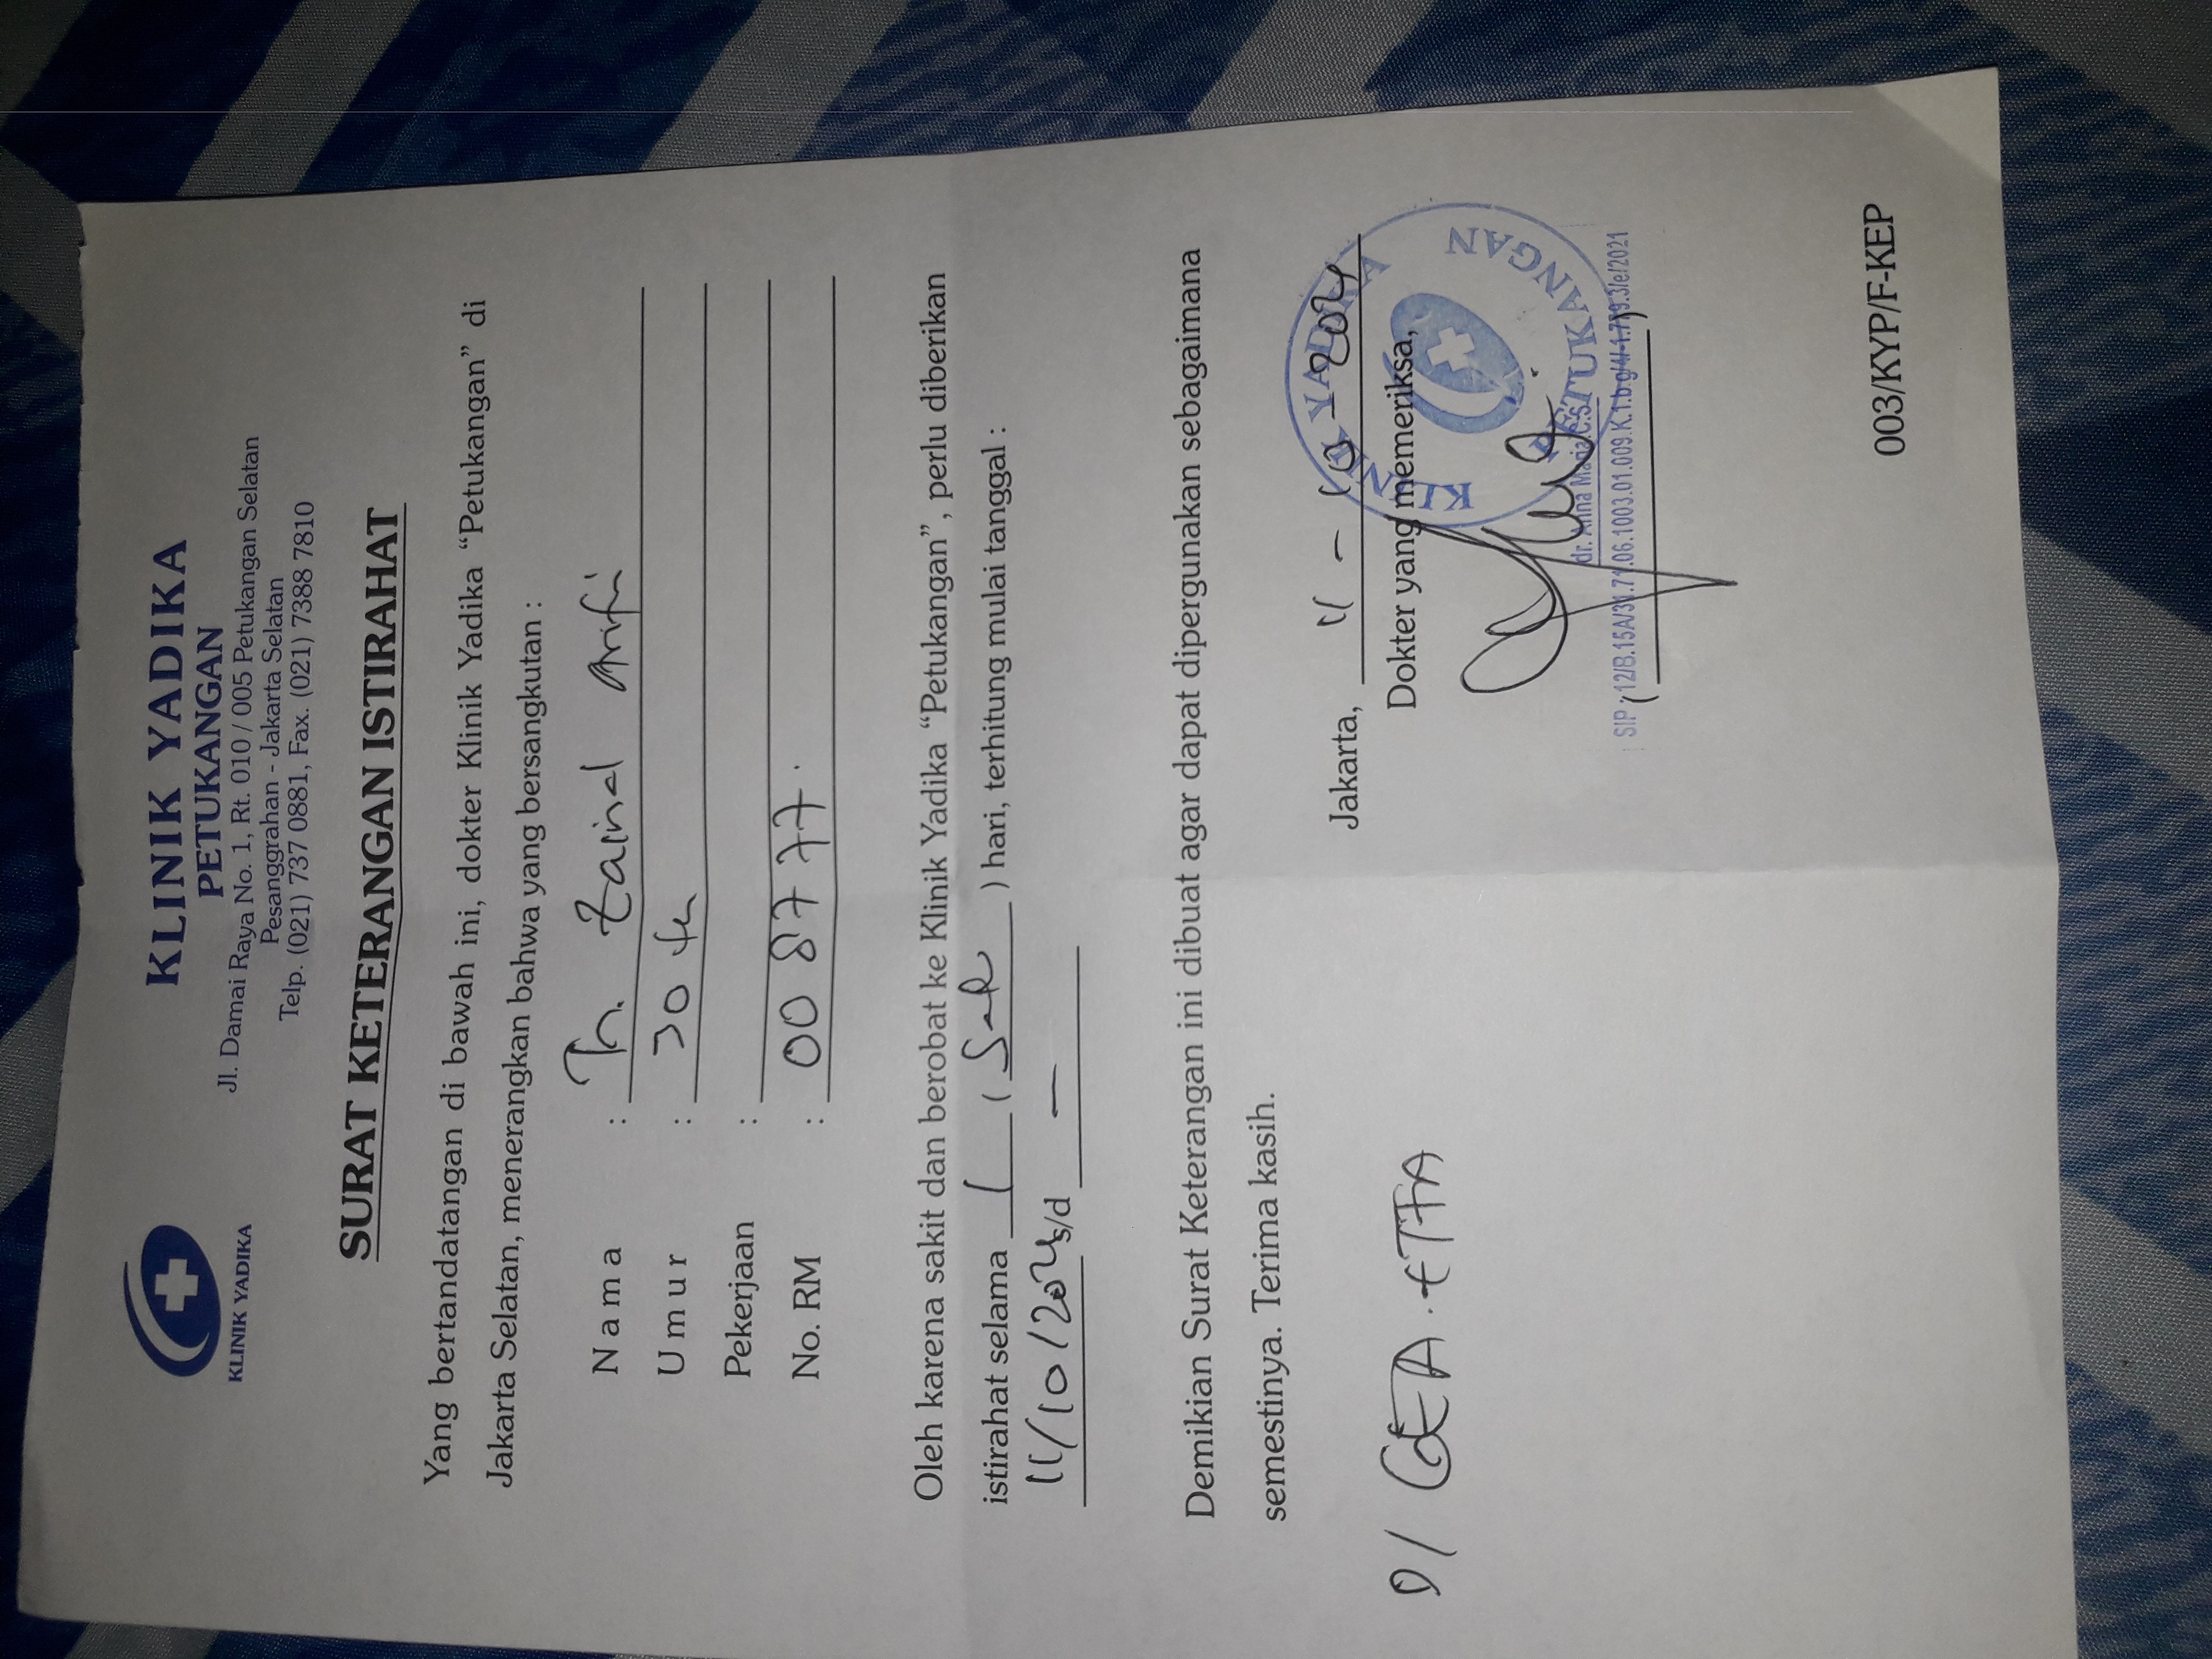 KLINIK YADIKA
KLINIK YADIKA
PETUKANGAN
Jl. Damai Raya No. 1, Rt. 010 / 005 Petukangan Selatan
Pesanggrahan - Jakarta Selatan
Telp. (021) 737 0881, Fax. (021) 7388 7810
SURAT KETERANGAN ISTIRAHAT
Yang bertandatangan di bawah ini, dokter Klinik Yadika “Petukangan” di
Jakarta Selatan, menerangkan bahwa yang bersangkutan :
Nama : Tn. Zainal Arifi
Umur : 30 th
Pekerjaan :
No. RM : 00 87 77.
Oleh karena sakit dan berobat ke Klinik Yadika “Petukangan”, perlu diberikan
istirahat selama 1 ( ) hari, terhitung mulai tanggal :
11/10/2024 s/d -
Demikian Surat Keterangan ini dibuat agar dapat dipergunakan sebagaimana
semestinya. Terima kasih.
Jakarta, 11 - 10 - 2024
Dokter yang memeriksa,
KLINIK YADIKA
PETUKANGAN
D/ GEA
dr. Anna Maria
SIP
003/KYP/F-KEP